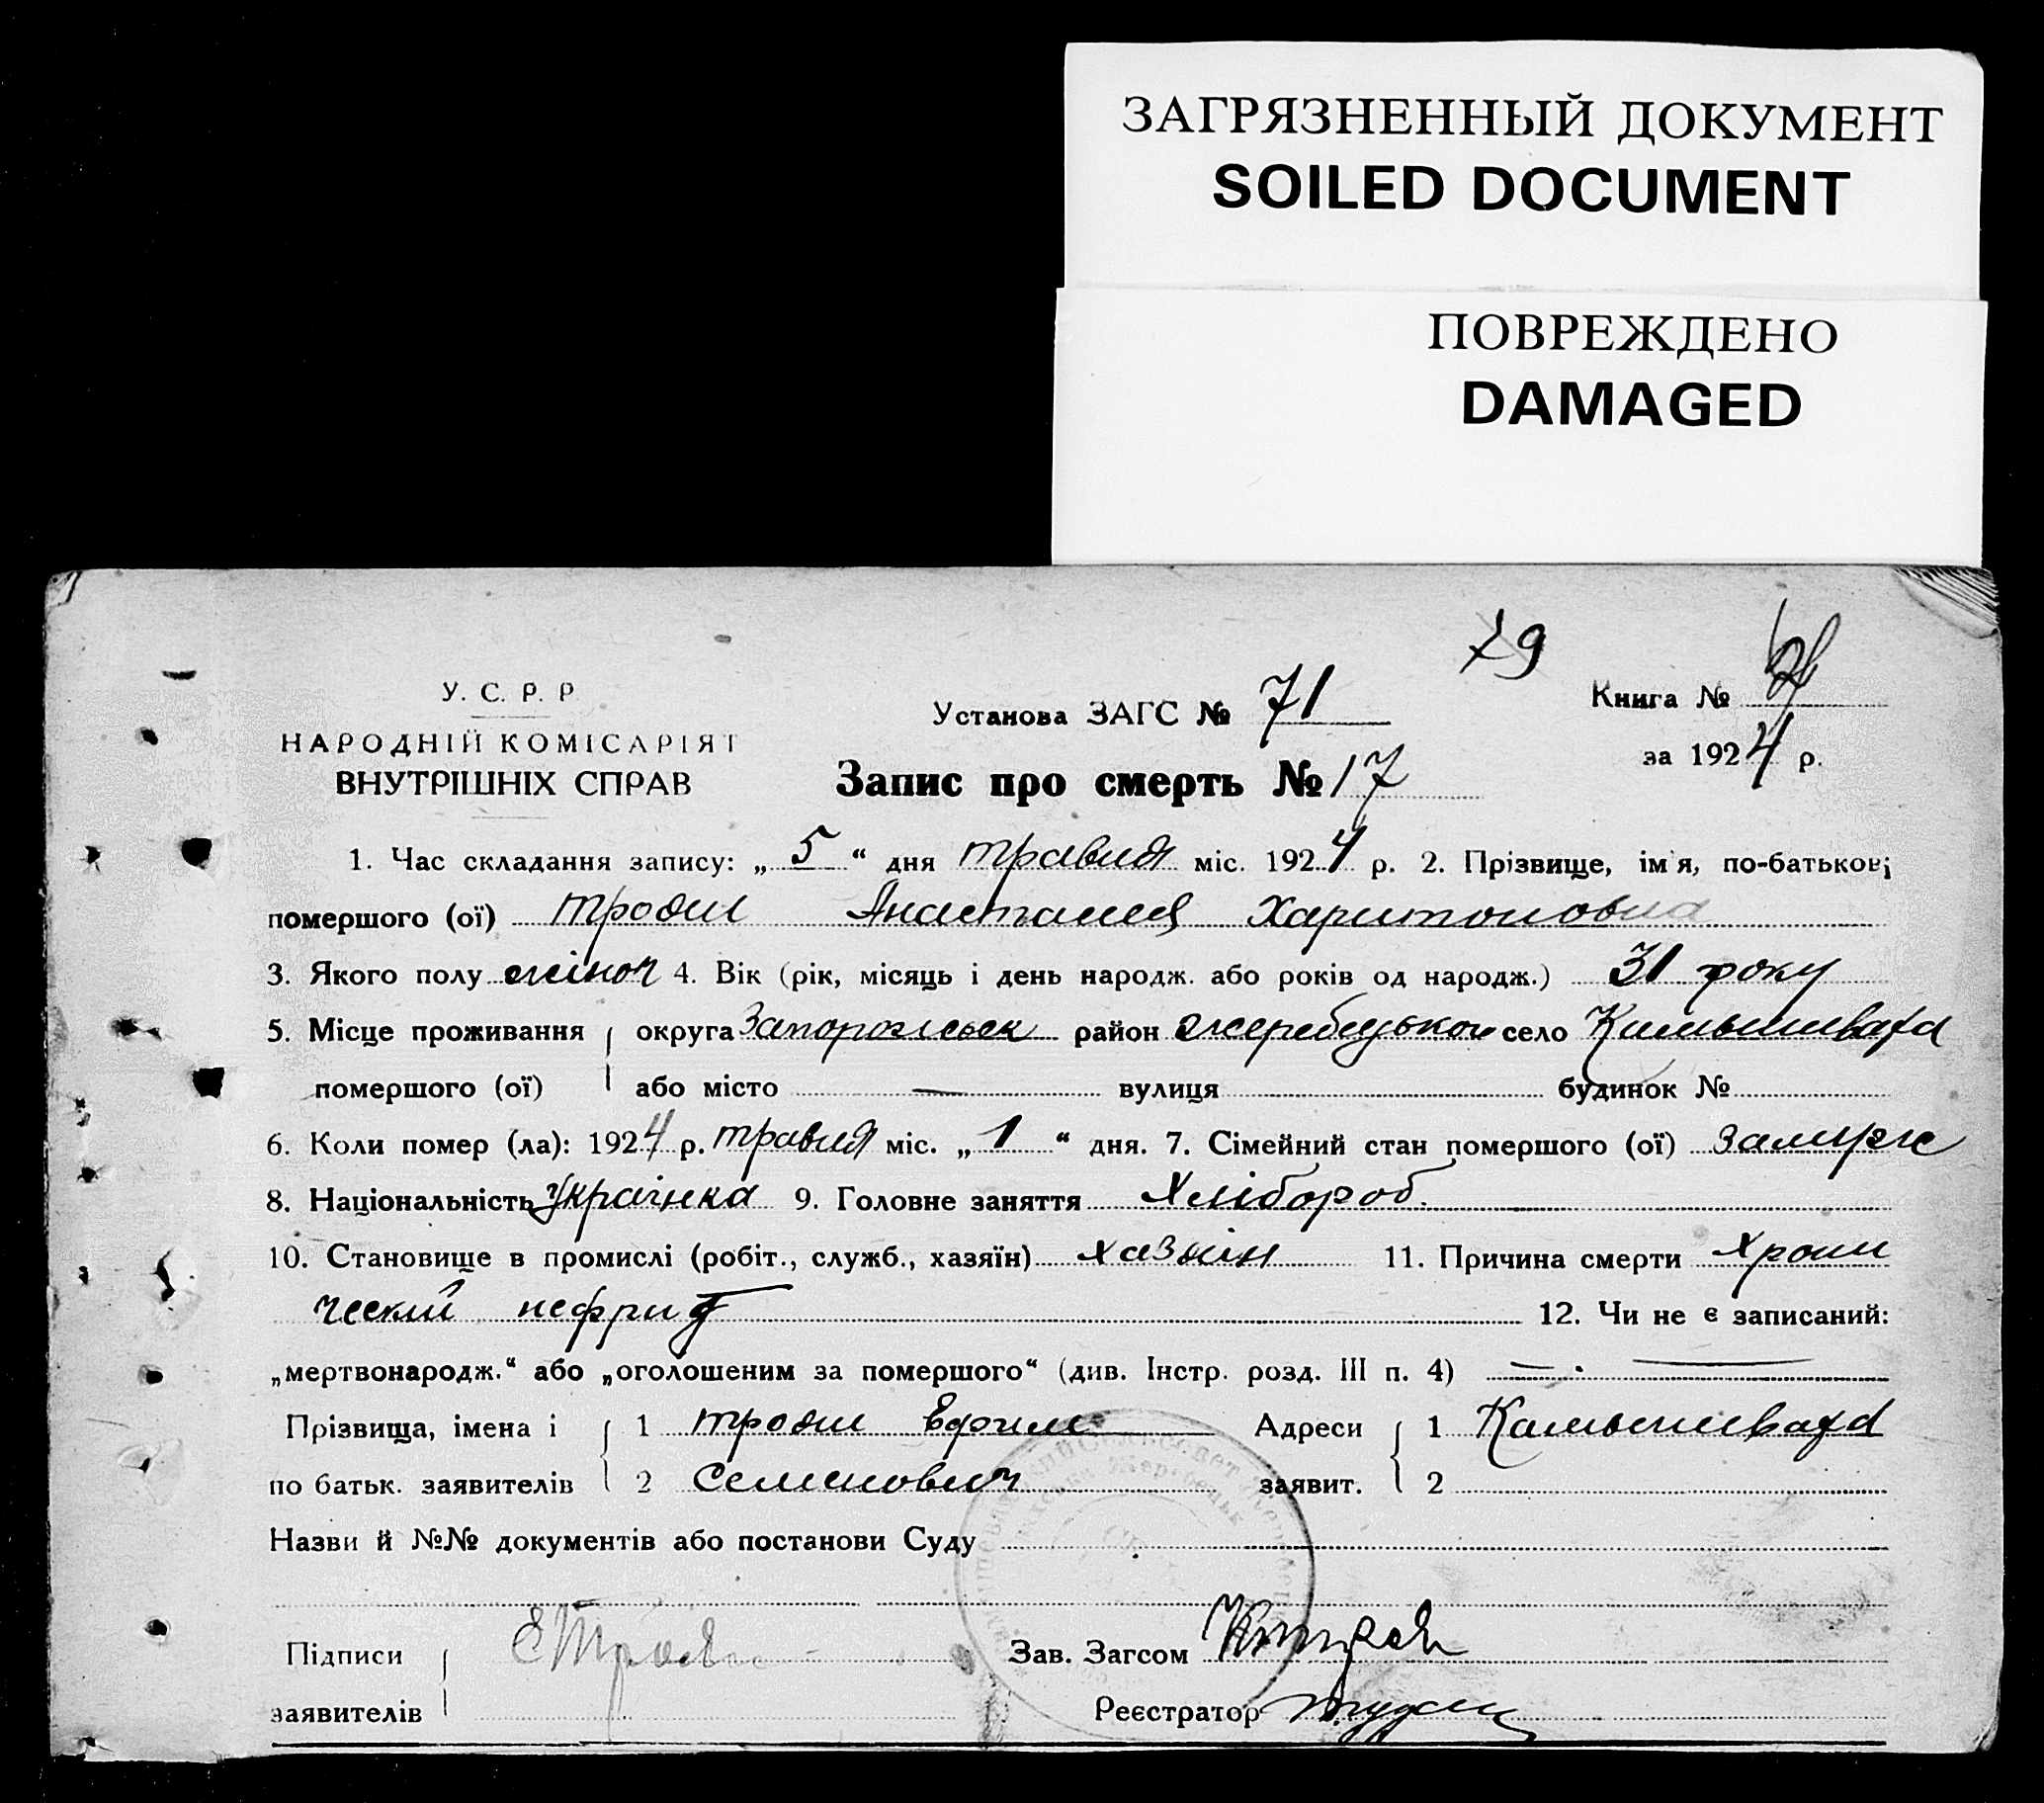 ЗАГРЯЗНЕННЫЙ ДОКУМЕНТ
SOILED DOCUMENT
ПОВРЕЖДЕНО
DAMAGED
79
У. С. Р. Р
НАРОДНІЙ КОМІСАРІЯТ
ВНУТРІШНІХ СПРАВ
Установа ЗАГС № 71
Книга №
за 1924 р.
Запис про смерть № 17
1. Час складання запису: „ 5 “ дня травня міс. 1924 р. 2. Прізвище, ім'я, по-батькові
помершого (ої) Троян Анастасия Харитоновна
3. Якого полу жіноч 4. Вік (рік, місяць і день народж. або років од народж.) 31 року
5. Місце проживання округа Запорожськ район Жеребецьког село Камышеваха
помершого (ої) або місто — вулиця будинок №
6. Коли помер (ла): 1924 р. травня міс. „ 1 “ дня. 7. Сімейний стан помершого (ої) замуже
8. Національність Українка 9. Головне заняття Хлібороб.
10. Становище в промислі (робіт., служб., хазяїн) хазяін 11. Причина смерти Хрони
ческий нефрит 12. Чи не є записаний:
„мертвонародж.“ або „оголошеним за помершого“ (див. Інстр. розд. III п. 4) —
Прізвища, імена і 1 Троян Ефим Адреси 1 Камышеваха
по батьк. заявителів 2 Семенович заявит. 2
Назви й №№ документів або постанови Суду
Підписи Е Троян Зав. Загсом
заявителів Реєстратор